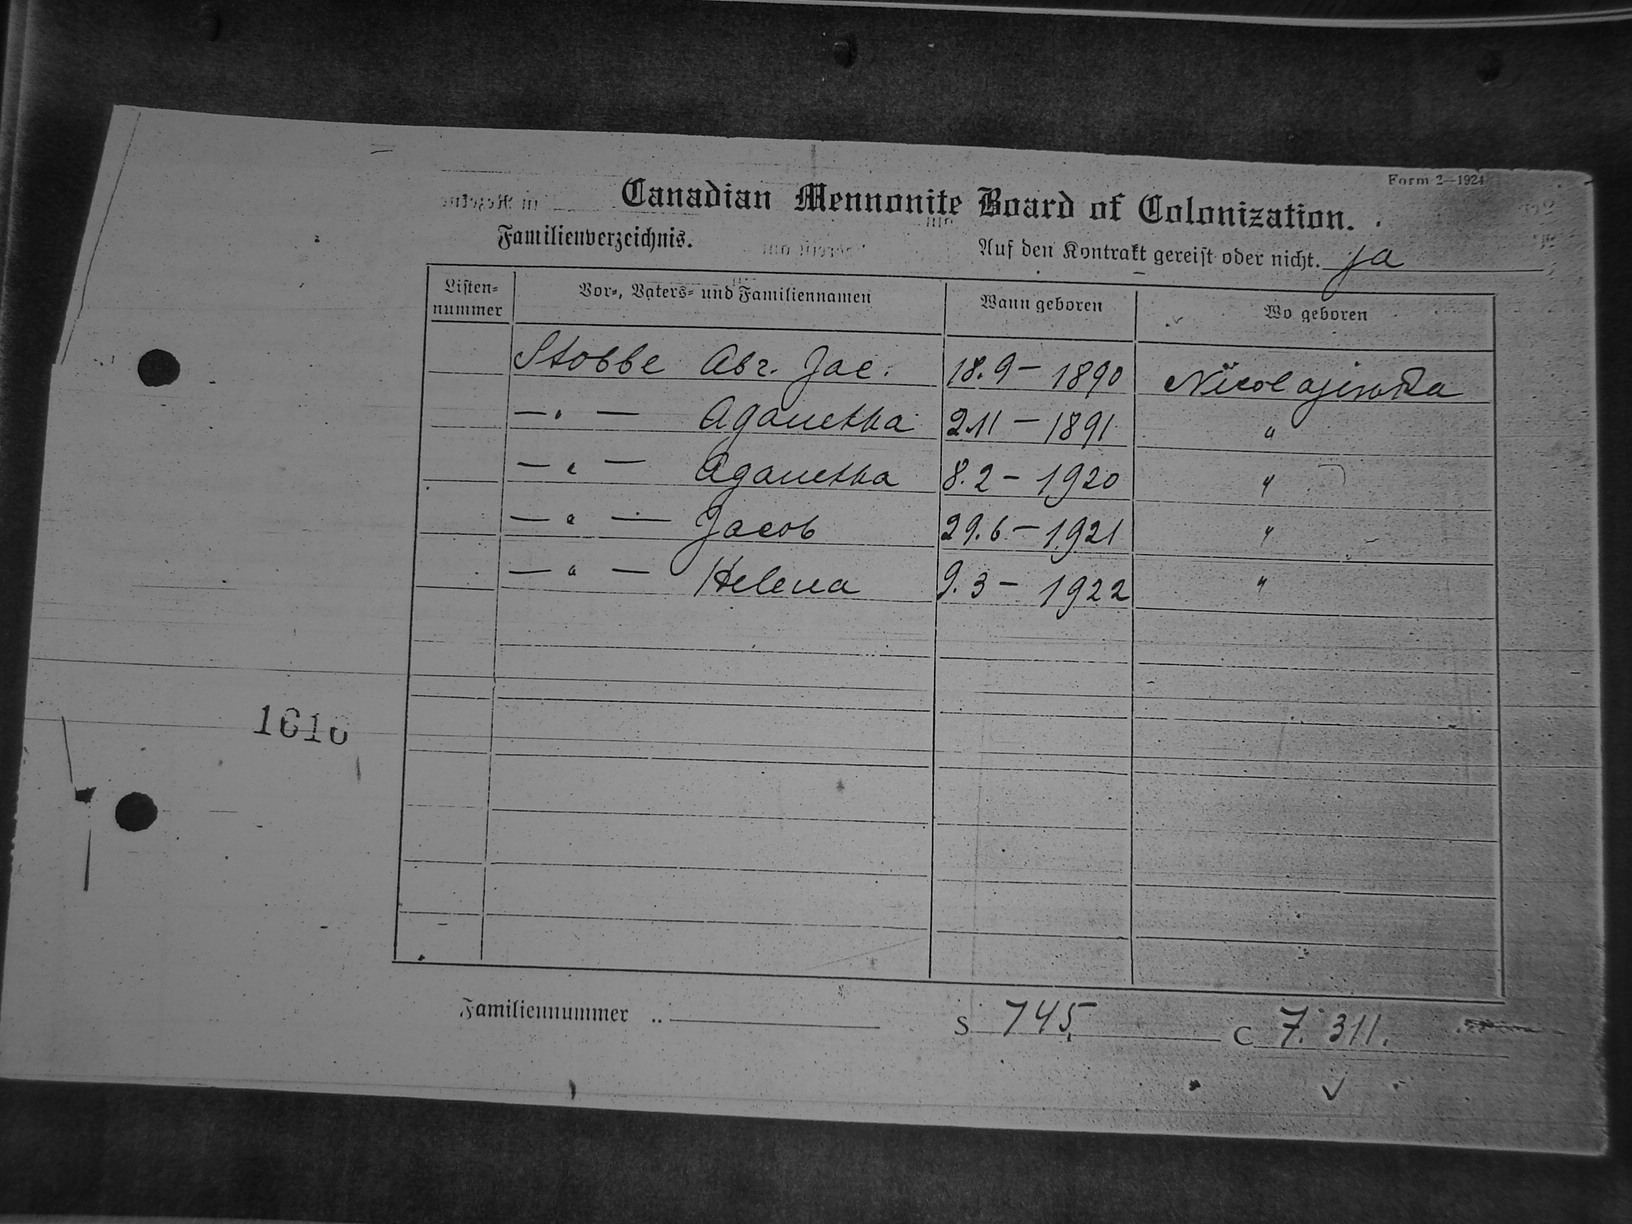 Form 2—1924
Canadian Mennonite Board of Colonization.
Familienverzeichnis.
Auf den Kontrakt gereist oder nicht. ja
Listen-nummer Vor-, Vaters- und Familiennamen Wann geboren Wo geboren
Stobbe Abr. Jac. 18.9 – 1890 Nicolajewka
— " — Aganetha 2.11 – 1891 "
— " — Aganetha 8.2 – 1920 "
— " — Jacob 29.6 – 1921 "
— " — Helena 9.3 – 1922 "
1616
Familiennummer S 745 C 7. 311.